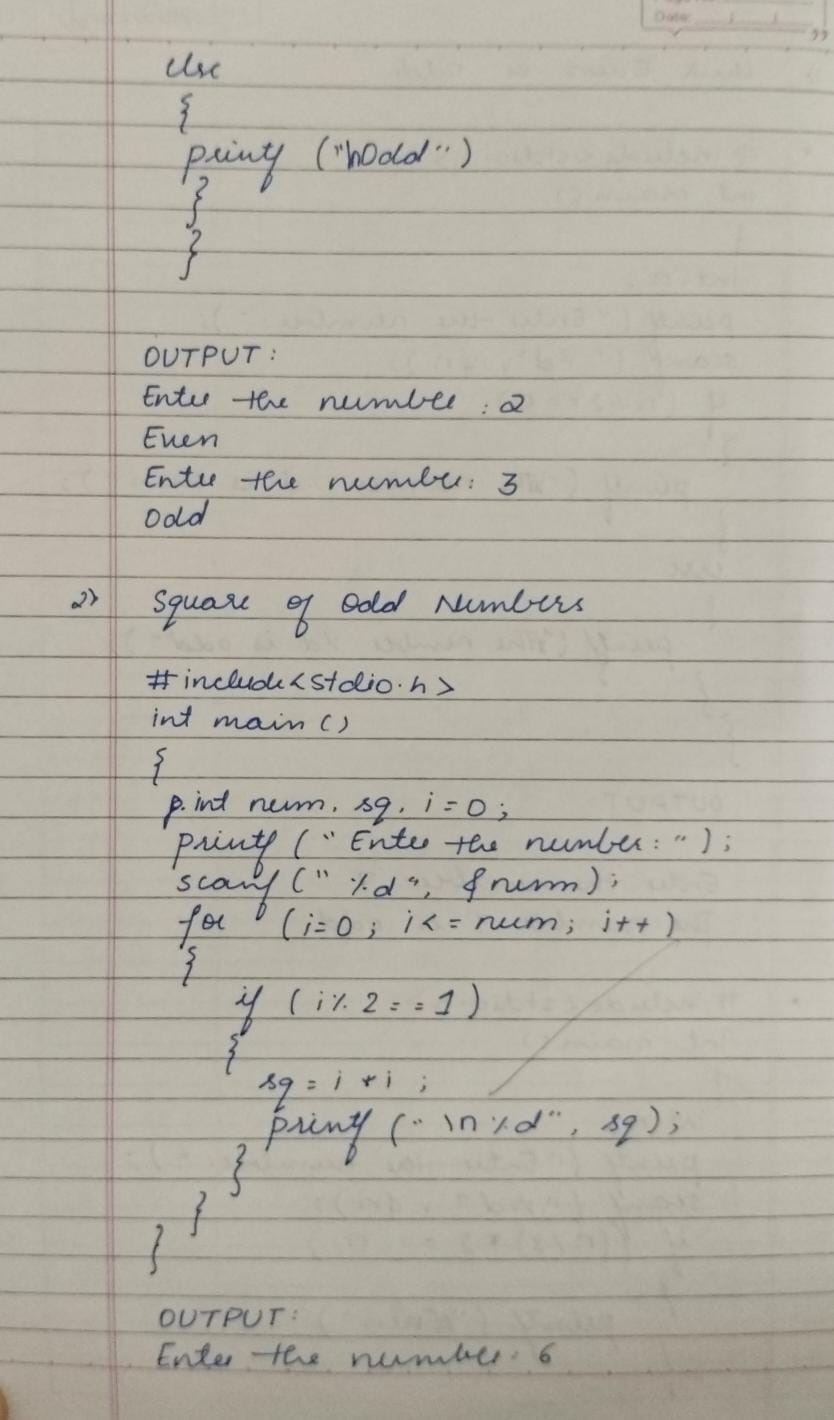 Date: / /
else
{
printf ("\nOdd")
}
}
OUTPUT:
Enter the number : 2
Even
Enter the number: 3
Odd
2) Square of Odd Numbers
#include<stdio.h>
int main()
{
p.int num, sq, i=0;
printf (" Enter the number: ");
scanf (" %d", &num);
for (i=0; i<=num; i++)
{
if (i%2==1)
{
sq = i * i ;
printf (" \n %d", sq);
}
}
}
OUTPUT:
Enter the number: 6